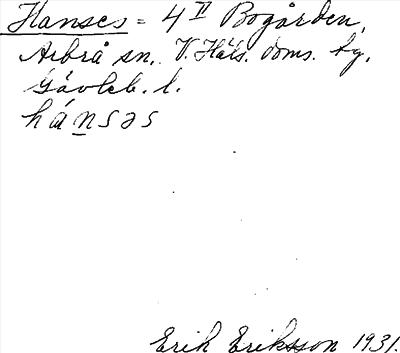 Hanses = 4 II Bogården,
Arbrå sn. V. Häls. doms. tg.
Gävleb. l.
hánsəs
Erik Eriksson 1931.